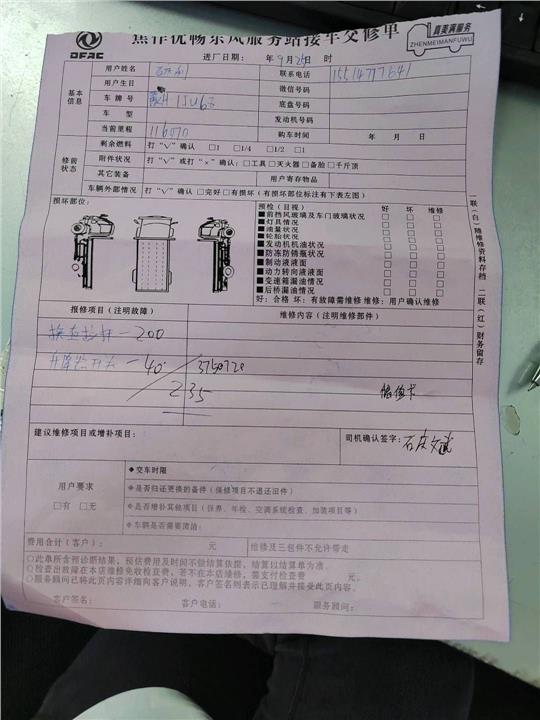 焦作优畅东风服务站接车交修单
DFAC
真美满服务
ZHENMEIMANFUWU
进厂日期: 年 9月 25日 时
基本信息
用户姓名 联系电话
用户生日 微信号码
车牌号 底盘号码
车型 发动机号码
当前里程 116070 购车时间 年 月 日
修前状态
剩余燃料 打“√”确认 □1 □1/4 □1/2 □1
附件状况 打“√”或打“×”确认:□工具□灭火器□备胎□千斤顶
其它装备 用户寄存物品
车辆外部情况 打“√”确认□完好□有损坏(有损坏部位标注有下表左图)
损坏部位:
预检(目视) 好 坏 维修
■前挡风玻璃及车门玻璃状况 □ □ □
■灯具情况 □ □ □
■油量状况 □ □ □
■轮胎状况 □ □ □
■发动机机油状况 □ □ □
■防冻防锈瓶状况 □ □ □
■制动液液面 □ □ □
■动力转向液液面 □ □ □
■变速箱漏油情况 □ □ □
■后桥漏油情况 □ □ □
好:合格 坏:有故障需维修 维修:用户确认维修
一联(白)随维修资料存档 二联(红)财务留存
报修项目(注明故障) 维修内容(注明维修部件)
换直拉杆-200
升降器开关-40. 3750720
235
建议维修项目或增补项目:
司机确认签字:
用户要求
□有 □无
◆交车时限
◆是否归还更换的备件(保修项目不退还旧件)
◆是否增补其他项目(保养、年检、空调系统检查、加装项目等)
◆车辆是否需要清洁:
费用合计(客户): 元 维修及三包件不允许带走
○此单所含预诊断结果,预估费用及时间不做结算依据,结算以结算单为准.
○检查出故障在本店维修免收检查费,若不在本店维修,需支付检查费 元.
○服务顾问已将此页内容详细向客户说明,客户签名则表示已理解并接受此页内容.
客户签名: 客户电话: 服务顾问: